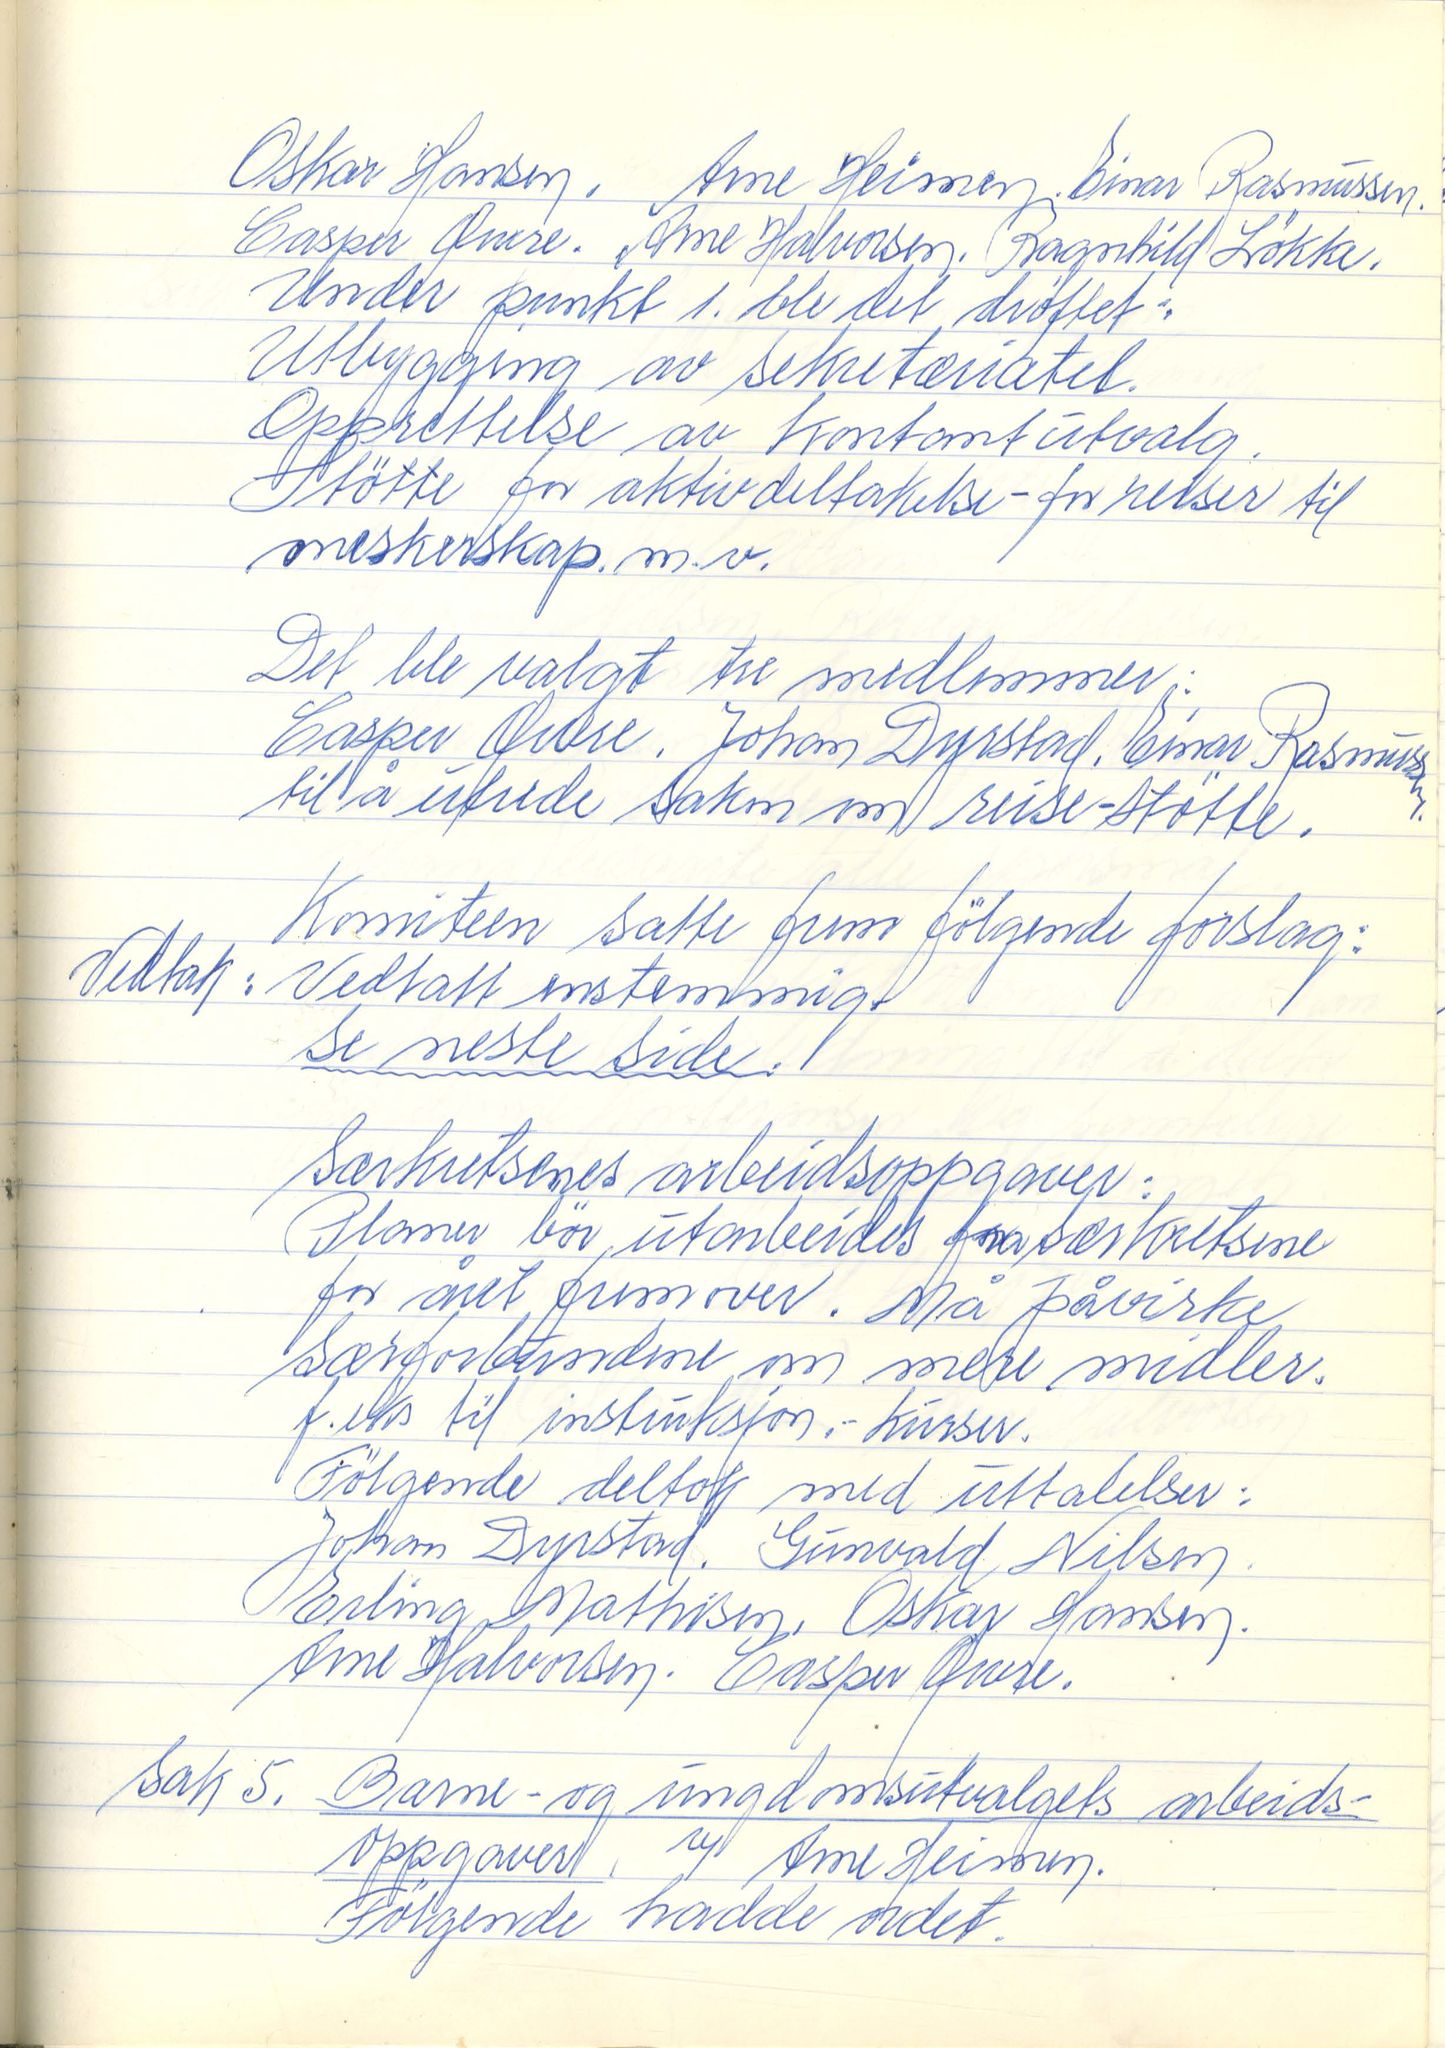 Oskar Hansen. Arne Heimen. Einar Rasmussen.
Casper Øvere. Arne Halvorsen. Ragnhild Lökke.
Under punkt 1. ble det dröftet:
Utbygging av sekretæriatet.
Opprettelse av kontantutvalg.
Stötte for aktiv deltakelse - for reiser til
mesterskap. m.v.
Det ble valgt tre medlemmer:
Casper Øvere. Johan Dyrstad. Einar Rasmussen.
til å utrede saken om reise-stötte.
Komiteen satte frem fölgende forslag:
Vedtak: Vedtatt enstemmig.
Se neste side.
Særkretsenes arbeidsoppgaver:
Planer bör utarbeides fra særkretsene
for året fremover. Må påvirke
særforbundene om mere midler.
f.eks til instruksjon.- kurser.
Fölgende deltok med uttalelser:
Johan Dyrstad. Gunvald Nilsen.
Erling Mathisen. Oskar Hansen.
Arne Halvorsen. Casper Øvere.
Sak 5. Barne- og ungdomsutvalgets arbeids-
oppgaver. v/ Arne Heimen.
Fölgende hadde ordet.